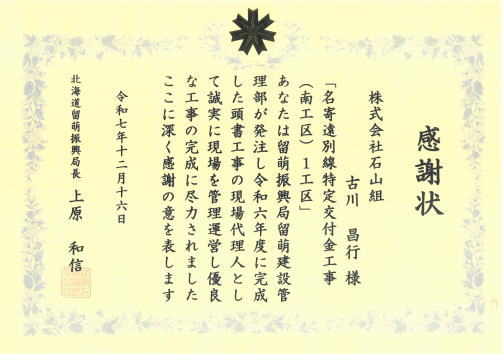 感謝状
株式会社石山組
古川 昌行 様
「名寄遠別線特定交付金工事
(南工区)1工区」
あなたは留萌振興局留萌建設管
理部が発注し令和六年度に完成
した頭書工事の現場代理人とし
て誠実に現場を管理運営し優良
な工事の完成に尽力されました
ここに深く感謝の意を表します
令和七年十二月十六日
北海道留萌振興局長 上原 和信